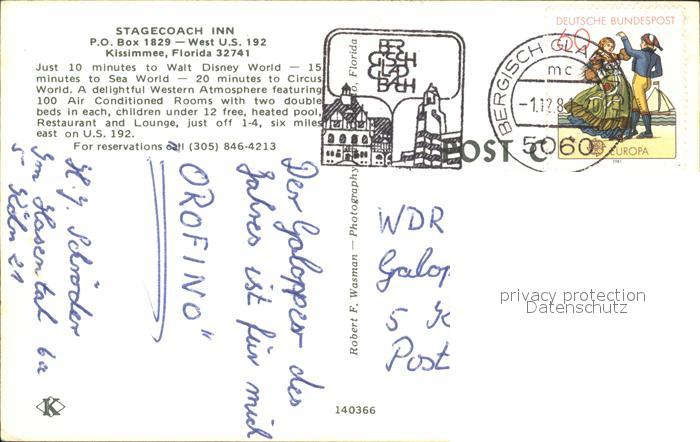 STAGECOACH INN
P.O. Box 1829 — West U.S. 192
Kissimmee, Florida 32741
Just 10 minutes to Walt Disney World — 15
minutes to Sea World — 20 minutes to Circus
World. A delightful Western Atmosphere featuring
100 Air Conditioned Rooms with two double
beds in each, children under 12 free, heated pool,
Restaurant and Lounge, just off 1-4, six miles
east on U.S. 192.
For reservations call (305) 846-4213
Der Galopper des
Jahres ist für mich
"OROFINO"
H. J. Schröder
Im Hasental 6a
5 Köln 21
K
Robert F. Wasman — Photography
Florida
140366
BER
GISCH
GLAD
BACH
BERGISCH GLA
mc
5060
DEUTSCHE BUNDESPOST
60
EUROPA
1981
POST C
WDR
Galop
5 K
Post
privacy protection
Datenschutz